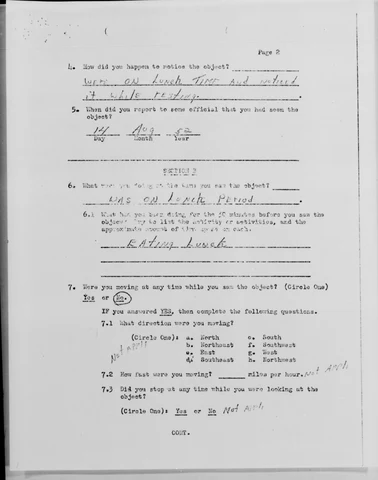 Page 2
4. How did you happen to notice the object?
WERE ON LUNCH TIME AND NOTICED
it while resting.
5. When did you report to some official that you had seen the
object?
14 Aug 52
Day Month Year
SECTION B
6. What were you doing at the time you saw the object?
WAS ON LUNCH PERIOD
6.1 What had you been doing for the 30 minutes before you saw the
object? Try to list the activity or activities, and the
approximate amount of time spent on each.
EATING LUNCH
7. Were you moving at any time while you saw the object? (Circle One)
Yes or No.
IF you answered YES, then complete the following questions.
7.1 What direction were you moving?
(Circle One): a. North e. South
b. Northeast f. Southwest
c. East g. West
d. Southeast h. Northwest
Not Appli
7.2 How fast were you moving? miles per hour. Not Appli
7.3 Did you stop at any time while you were looking at the
object?
(Circle One): Yes or No Not Appli
CONT.